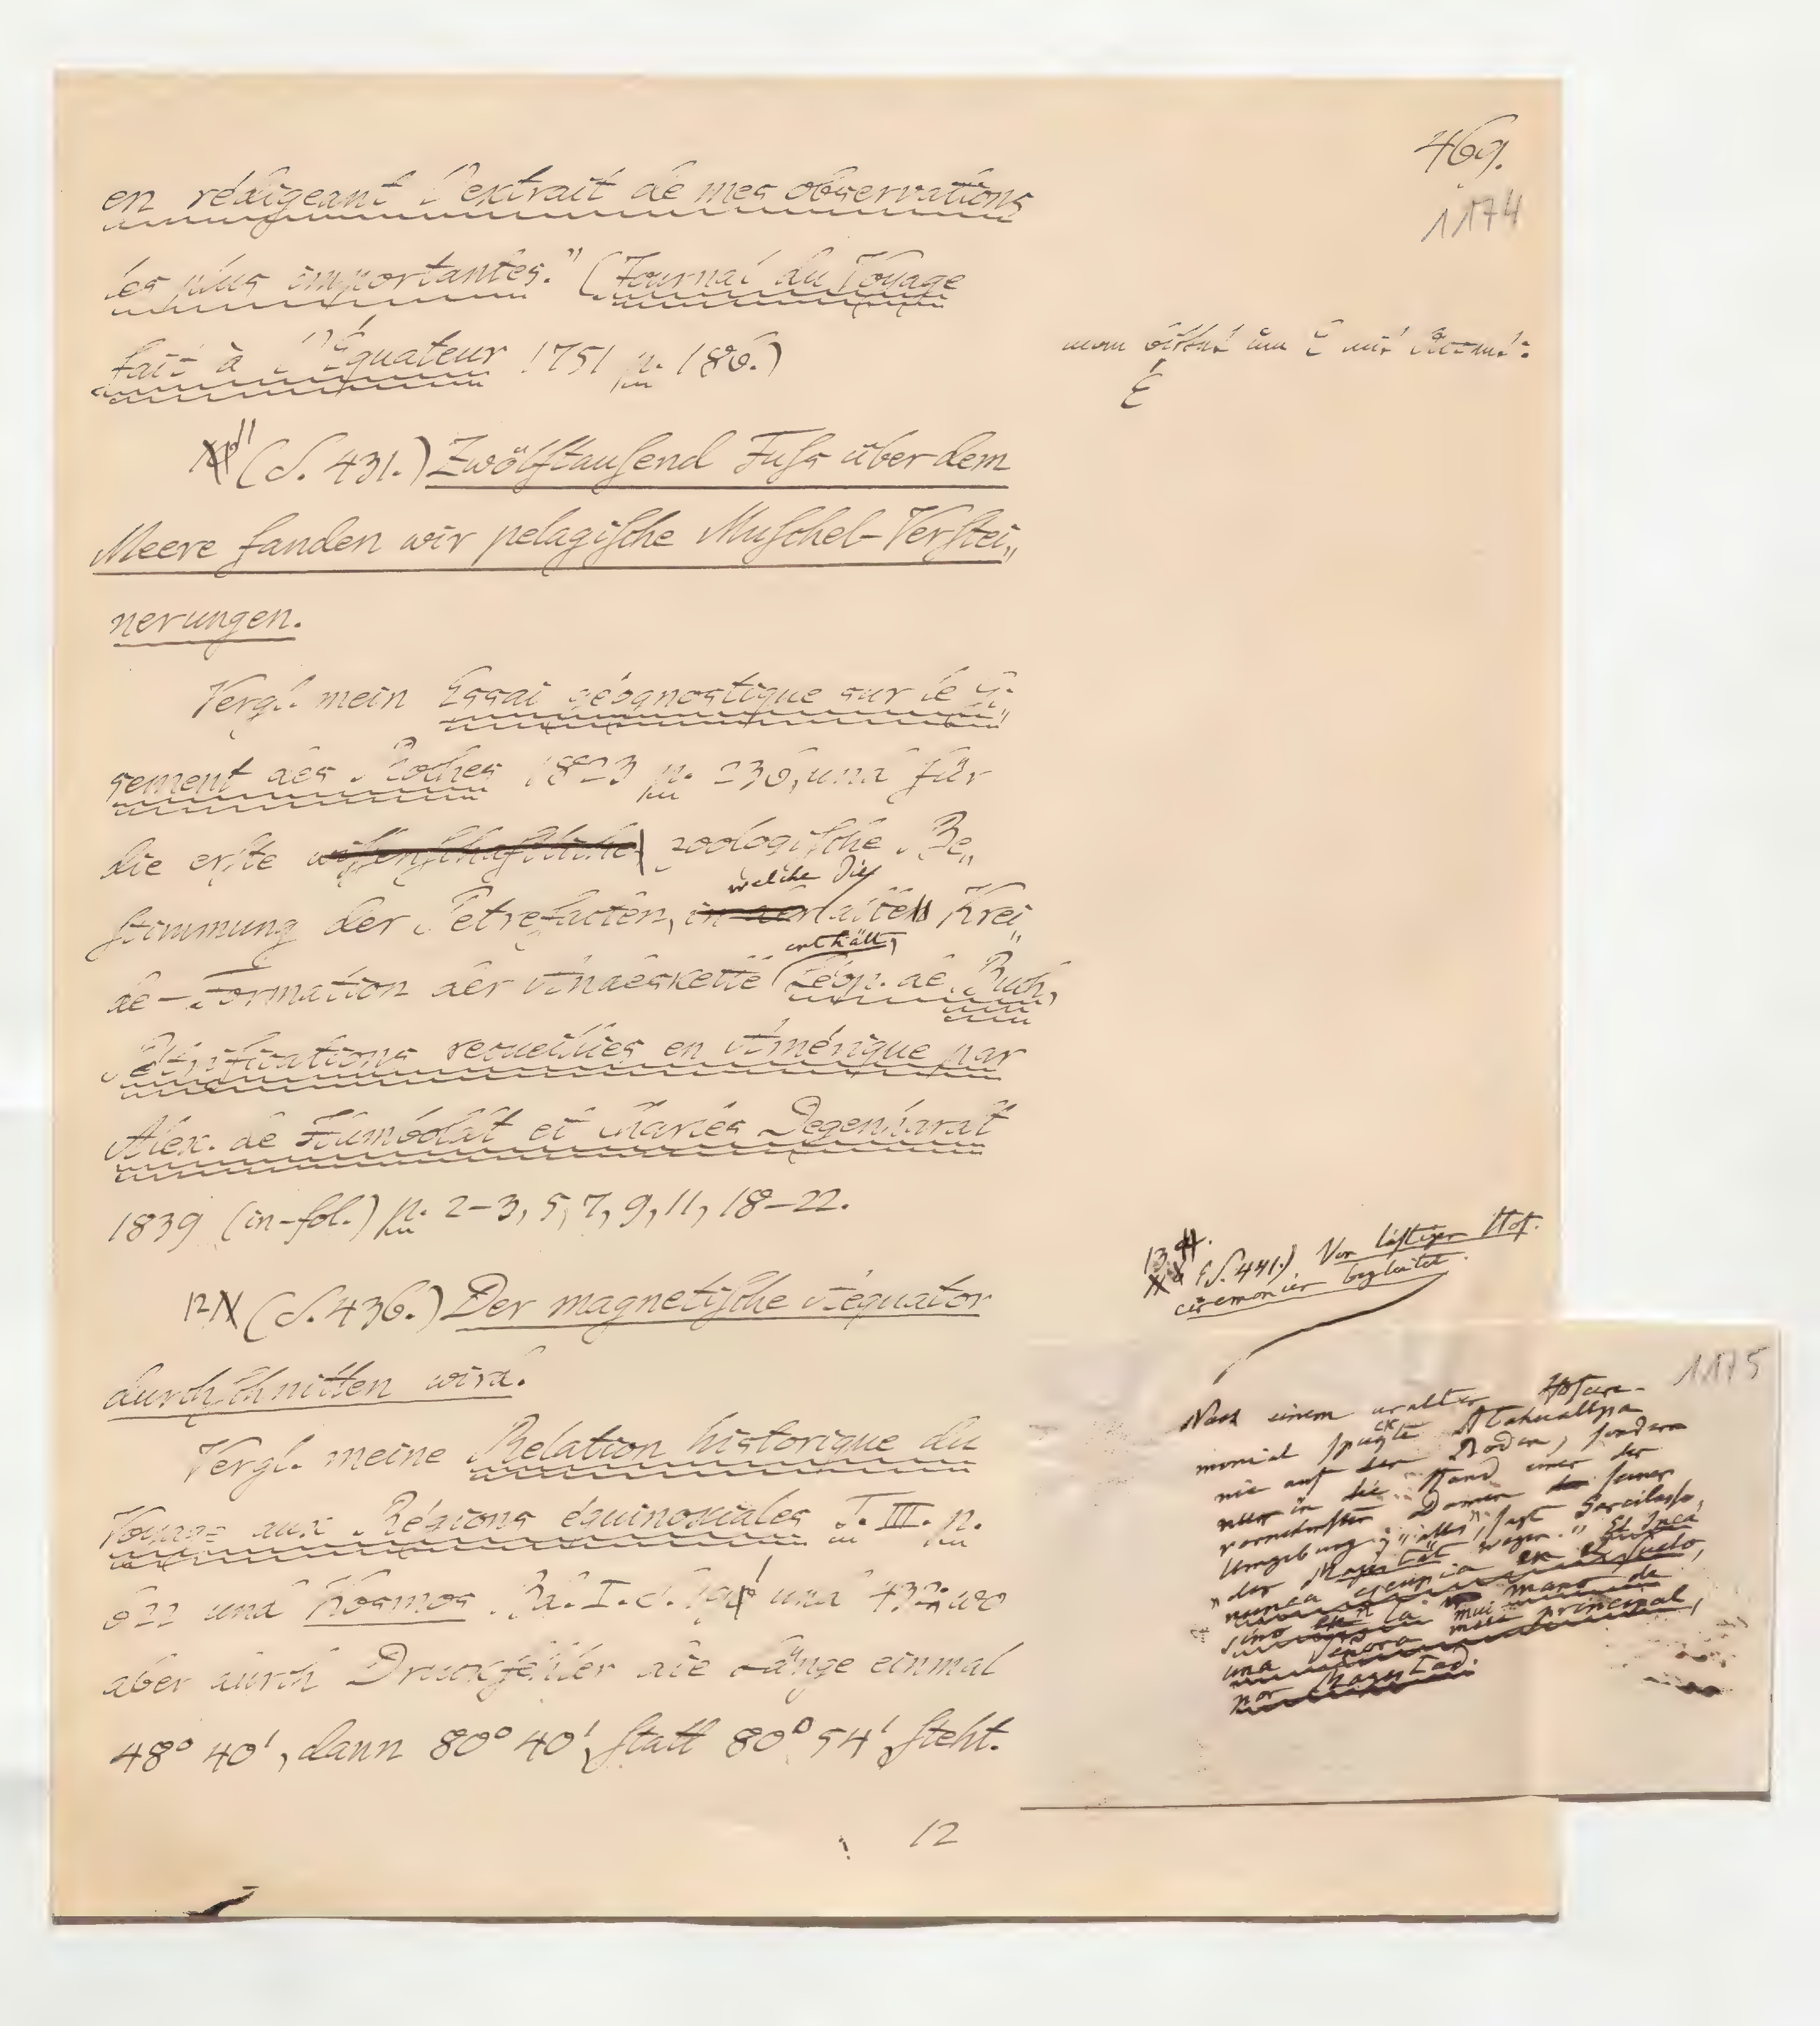 469.
1174
en rédigeant l'extrait de mes observations
les plus importantes." (Journal du Voyage
fait à l'Équateur 1751 p. 186.)
man bittet um É mit Accent:
É
11 (S. 431.) Zwölftauſend Fuſs über dem
Meere fanden wir pelagiſche Muſchel-Verſtei„
nerungen.
Vergl. mein Essai géognostique sur le Gi„
sement des Roches 1823 p. 236, und für
die erſte wiſſenſchaftliche zoologiſche Be„
welche die
ſtimmung der Petrefacten, in der alten Krei„
enthält,
de-Formation der Andeskette Léop. de Buch,
Pétrifications recueillies en Amérique par
Alex. de Humboldt et Charles Degenhardt
1839 (in-fol.) p. 2-3, 5, 7, 9, 11, 18-22.
12 (S. 436.) Der magnetiſche Aequator
durchſchnitten wird.
Vergl. meine Relation historique du
Voyage aux Régions équinoxiales T. III. p.
622 und Kosmos Bd. I. S. 191 und 432; wo
aber durch Druckfehler die Länge einmal
48° 40', dann 80° 40', ſtatt 80° 54', ſteht.
12
13 (S. 441.) Von läſtigem Hof-
ceremoniel begleitet.
1175
Nach einem uralten Hofcere-
moniel ſpuckte Atahuallpa
nie auf den Boden, ſondern
nur in die Hand einer der
vornehmſten Damen ſeiner
Umgebung; „alles", ſagt Garcilaſo,
„der Majeſtät wegen." El Inca
nunca escupia en el ſuelo,
sino en la mano de
una Señora mui principal,
por Mageſtad.